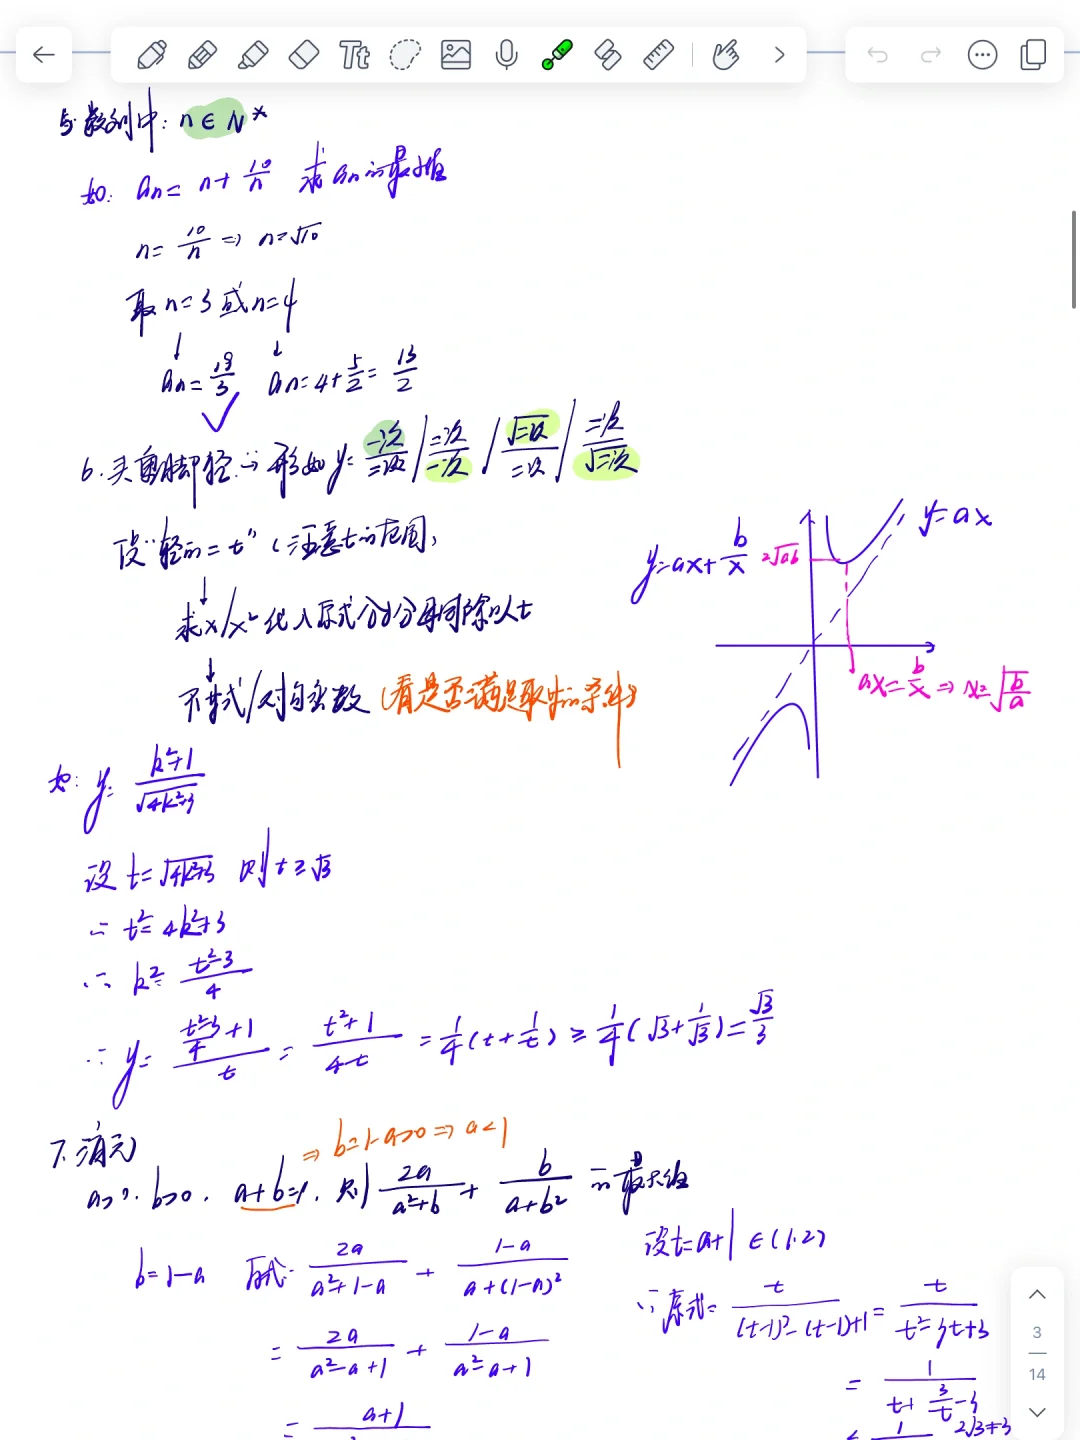 Tt
5. 数列中: n ∈ N*
如: an = n + 10/n 求an的最小值
n = 10/n ⇒ n = √10
取 n=3 或 n=4
↓ ↓
an = 19/3 an = 4 + 5/2 = 13/2
✓
6. 头重脚轻: 形如 y = 一次/二次 | 二次/一次 | √二次/二次 | 二次/√二次
设"轻的 = t" (注意t的范围)
↓
求x/x² 代入原式分子分母同除以t
↓
不等式/对勾函数 (看是否满足取等的条件)
y = ax + b/x
2√ab
y = ax
ax = b/x ⇒ x = √(b/a)
如: y = (k²+1)/√(4k²+3)
设 t = √(4k²+3) 则 t ≥ √3
∴ t² = 4k²+3
∴ k² = (t²-3)/4
∴ y = ((t²-3)/4 + 1)/t = (t²+1)/(4t) = 1/4 (t + 1/t) ≥ 1/4 (√3 + 1/√3) = √3/3
7. 消元
⇒ b = 1-a > 0 ⇒ a < 1
a>0, b>0, a+b=1, 则 2a/(a²+b) + b/(a+b²) 的最大值
b = 1-a 原式 = 2a/(a²+1-a) + (1-a)/(a+(1-a)²)
= 2a/(a²-a+1) + (1-a)/(a²-a+1)
= a+1
设 t = a+1 ∈ (1,2)
∴ 原式 = t/((t-1)²-(t-1)+1) = t/(t²-3t+3)
= 1/(t + 3/t - 3)
≤ 1 2√3-3
3
14